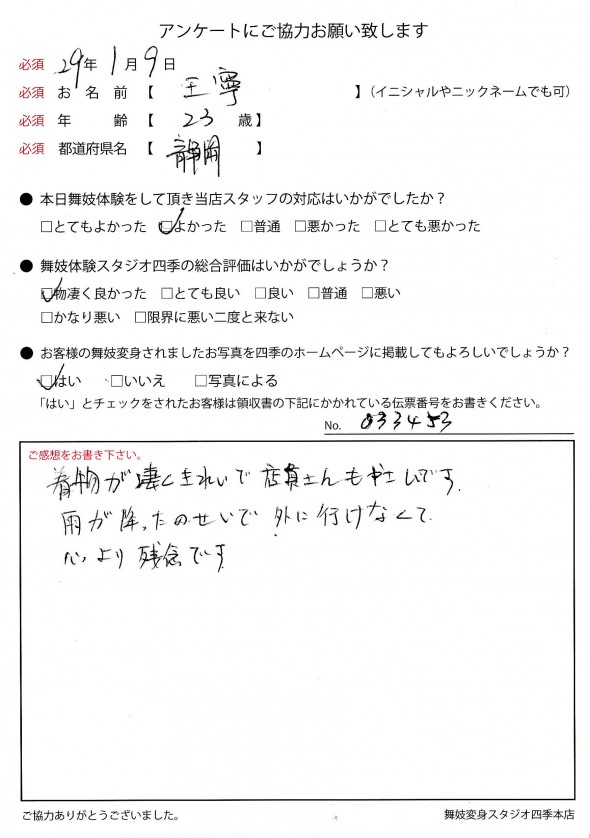 アンケートにご協力お願い致します
必須 29年 1月 9日
必須 お名前【 王寧 】(イニシャルやニックネームでも可)
必須 年齢【 23 歳】
必須 都道府県名【 静岡 】
● 本日舞妓体験をして頂き当店スタッフの対応はいかがでしたか？
□とてもよかった ☑よかった □普通 □悪かった □とても悪かった
● 舞妓体験スタジオ四季の総合評価はいかがでしょうか？
☑物凄く良かった □とても良い □良い □普通 □悪い
□かなり悪い □限界に悪い二度と来ない
● お客様の舞妓変身されましたお写真を四季のホームページに掲載してもよろしいでしょうか？
☑はい □いいえ □写真による
「はい」とチェックをされたお客様は領収書の下記にかかれている伝票番号をお書きください。
No. 033453
ご感想をお書き下さい。
着物が凄くきれいで店員さんもやさしいです。
雨が降ったのせいで外に行けなくて
心より残念です
ご協力ありがとうございました。
舞妓変身スタジオ四季本店